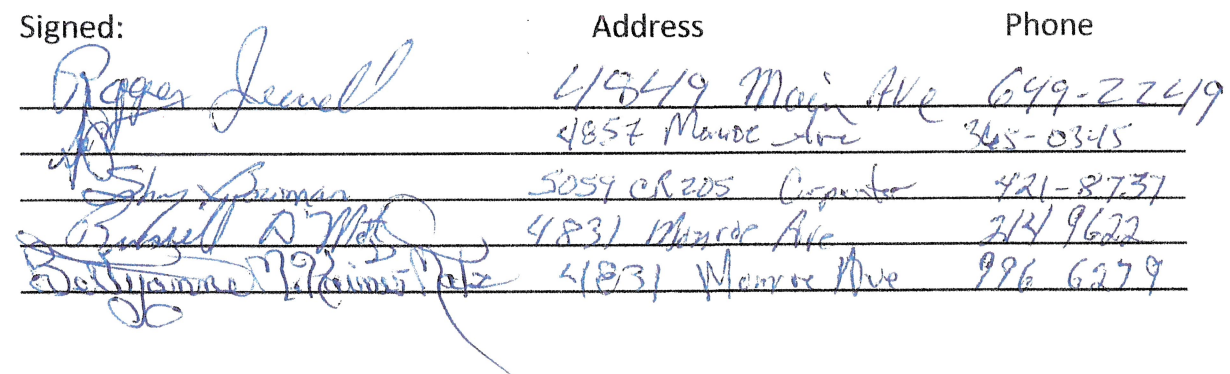 Signed: Address Phone
Roger Jewell 4849 Main Ave 649-2249
4857 Monroe Ave 365-0345
John Bowman 5059 CR 205 Carpenter 421-8737
Russell D Motz 4831 Monroe Ave 214 9622
Bettyanne Motz 4831 Monroe Ave 996 6279